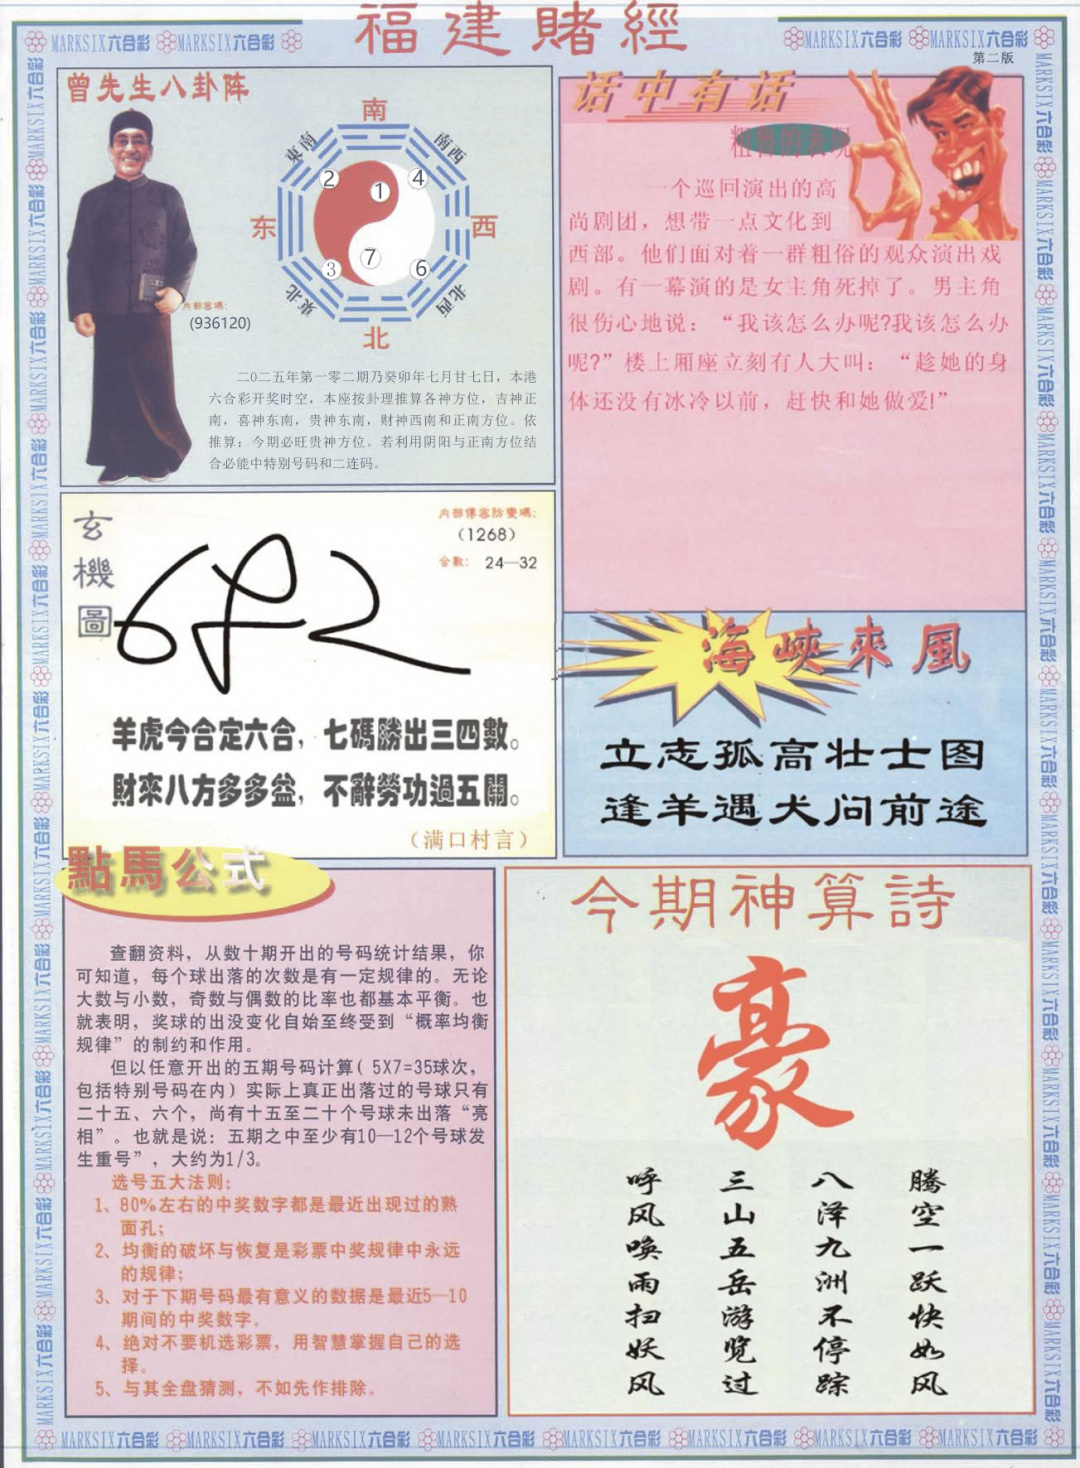 福建賭經
MARKSIX六合彩 MARKSIX六合彩
MARKSIX六合彩 MARKSIX六合彩
第二版
曾先生八卦阵
南
東南
南西
2
1
4
东
西
3
7
6
東北
北西
北
内部密碼:
(936120)
二〇二五年第一零二期乃癸卯年七月廿七日，本港
六合彩开奖时空，本座按卦理推算各神方位，吉神正
南，喜神东南，贵神东南，财神西南和正南方位。依
推算：今期必旺贵神方位。若利用阴阳与正南方位结
合必能中特别号码和二连码。
话中有话
粗鲁的表现
一个巡回演出的高
尚剧团，想带一点文化到
西部。他们面对着一群粗俗的观众演出戏
剧。有一幕演的是女主角死掉了。男主角
很伤心地说：“我该怎么办呢?我该怎么办
呢?”楼上厢座立刻有人大叫：“趁她的身
体还没有冰冷以前，赶快和她做爱!”
玄機圖
内部傳密防變碼:
(1268)
合數: 24—32
羊虎今合定六合，七碼勝出三四數。
財來八方多多益，不辭勞功過五關。
(满口村言)
海峽來風
立志孤高壮士图
逢羊遇犬问前途
點馬公式
查翻资料，从数十期开出的号码统计结果，你
可知道，每个球出落的次数是有一定规律的。无论
大数与小数，奇数与偶数的比率也都基本平衡。也
就表明，奖球的出没变化自始至终受到“概率均衡
规律”的制约和作用。
但以任意开出的五期号码计算( 5X7=35球次,
包括特别号码在内) 实际上真正出落过的号球只有
二十五、六个，尚有十五至二十个号球未出落“亮
相”。也就是说：五期之中至少有10—12个号球发
生重号”，大约为1/3。
选号五大法则:
1、80%左右的中奖数字都是最近出现过的熟
面孔;
2、均衡的破坏与恢复是彩票中奖规律中永远
的规律;
3、对于下期号码最有意义的数据是最近5—10
期间的中奖数字。
4、绝对不要机选彩票，用智慧掌握自己的选
择。
5、与其全盘猜测，不如先作排除。
今期神算詩
豪
腾空一跃快如风
八泽九洲不停踪
三山五岳游览过
呼风唤雨扫妖风
MARKSIX六合彩 MARKSIX六合彩 MARKSIX六合彩 MARKSIX六合彩 MARKSIX六合彩 MARKSIX六合彩 MARKSIX六合彩 MARKSIX六合彩